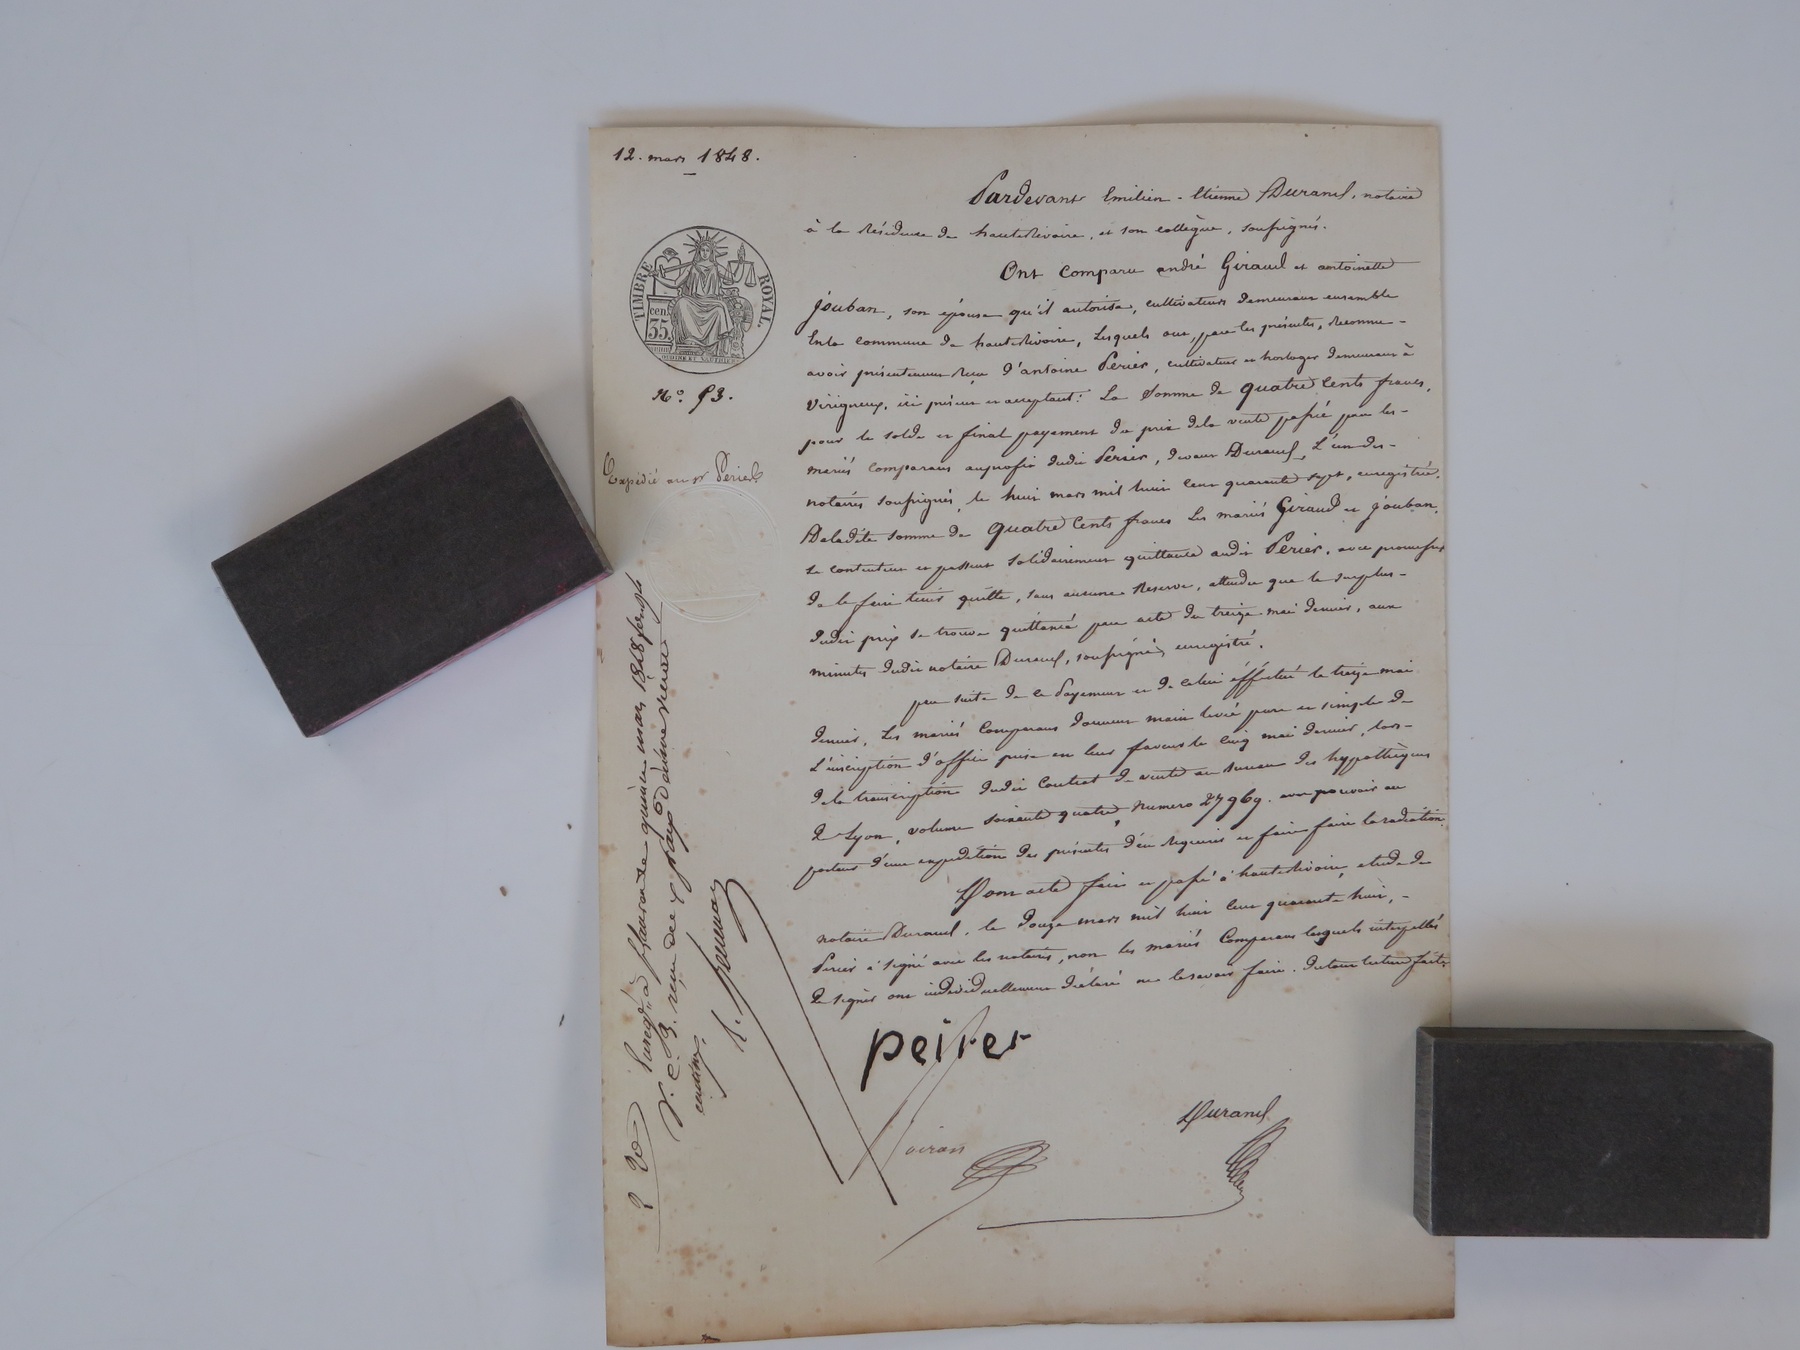 12. mars 1848.
Pardevant Emilien - Etienne Durand, notaire
à la Résidence de hauterivoire, et son collègue, soussignés.
TIMBRE ROYAL.
cen.
35.
N.° 53.
Expédié au sr Perier
Ont comparu andré Giraud et antoinette
jouban, son épouse qu'il autorise, cultivateurs demeurans ensemble
En la commune de hauterivoire, Lesquels ont, par les présentes, Reconnu
avoir présentement Reçu d'antoine Perier, cultivateur et horloger demeurant à
Virigneux, ici présent et acceptant: La Somme de quatre Cents francs,
pour le solde et final payement du prix dela vente passée par les
mariés comparans auprofit dudit Perier, devant Durand, L'un des
notaires soussignés, le huit mars mil huit cent quarante sept, enregistrée.
Deladite somme de quatre Cents francs Les mariés Giraud et jouban,
se contentent et passent solidairement quittance audit Perier, avec promesse
de le faire tenir quitte, sans aucune Reserve, attendu que le surplus
dudit prix se trouve quittancé par acte du treize mai dernier, aux
minutes dudit notaire Durand, soussigné, enregistré.
par suite de ce Payement et de celui éffectué le treize mai
dernier, Les mariés Comparans donnent main levée pure et simple de
L'inscription d'office prise en leur faveur le cinq mai dernier, lors
dela transcription dudit Contrat de vente au bureau des hypothèques
de Lyon, volume soixante quatre, numero 27969. avec pouvoir au
porteur d'une expedition des présentes d'en Requerir et faire faire la radiation.
Dont acte fait et passé à hauterivoire, etude de
notaire Durand, le douze mars mil huit cent quarante huit,
Perier a signé avec les notaires, non les mariés Comparans lesquels interpellés
de signer ont individuellement déclaré ne le savoir faire. du tout lecture faite
peirer
Durand
oiran
Enregé à St Laurent le quinze mars 1848 folio
V. C. 3. reçu deux francs dixieme vingt
centimes.